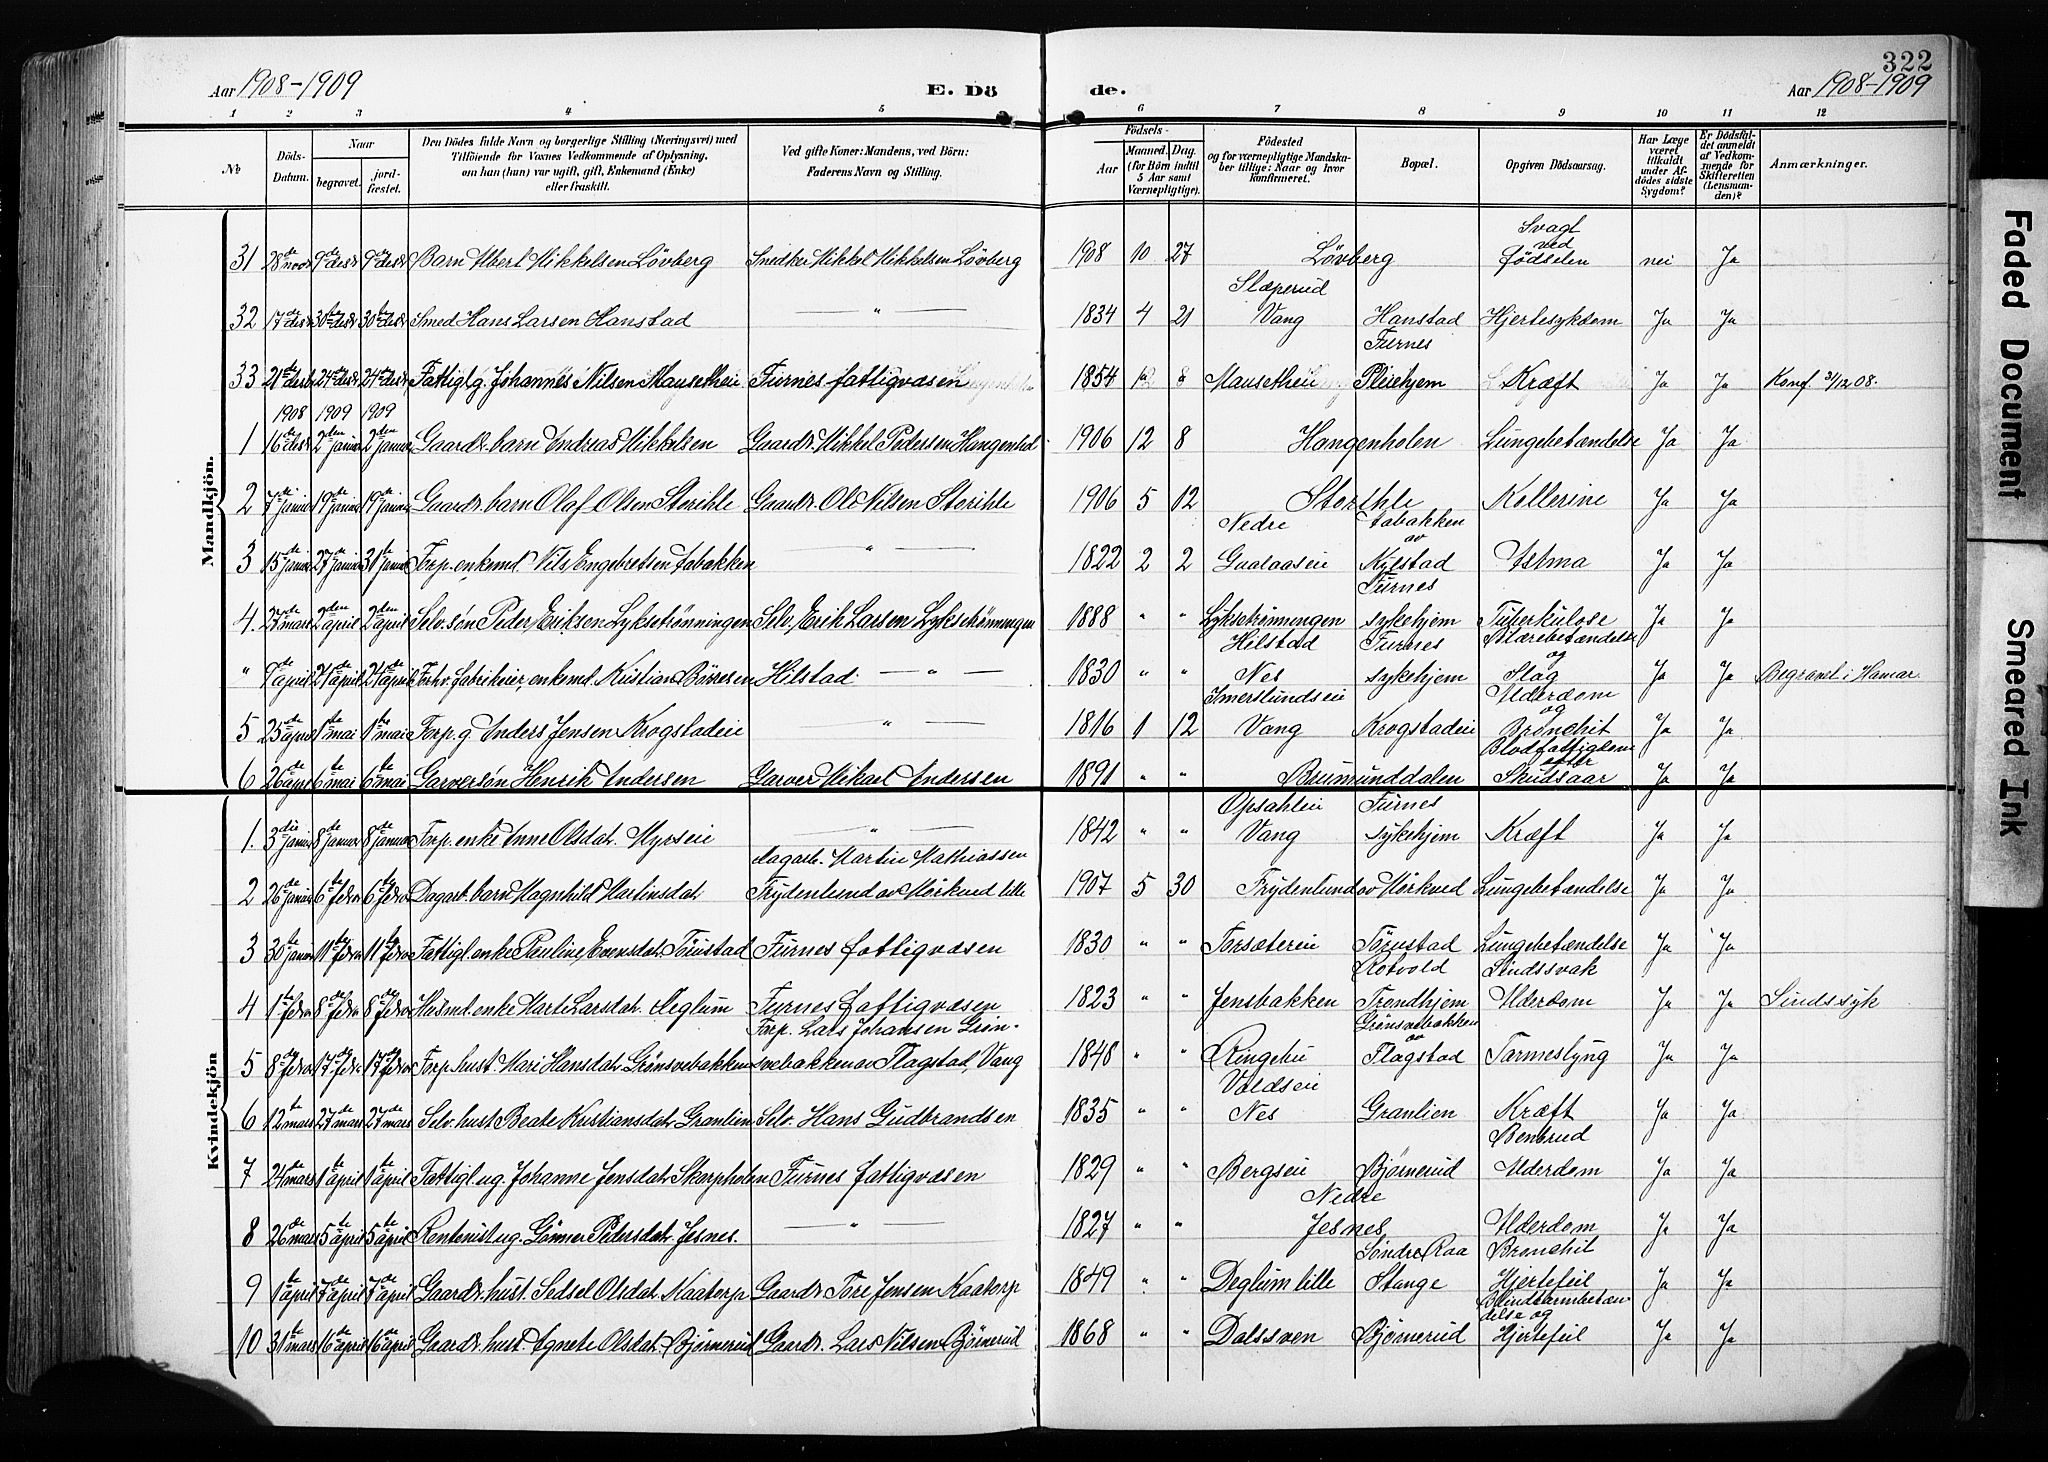 322
Aar 1908-1909 E. Dö de. Aar 1908-1909
1 2 3 4 5 6 7 8 9 10 11 12
No
Döds-Datum.
Naar
begravet.
jordfæstet.
Den Dödes fulde Navn og borgerlige Stilling (Næringsvei) med
Tilföiende for Voxnes Vedkommende af Oplysning,
om han (hun) var ugift, gift, Enkemand (Enke)
eller fraskilt.
Ved gifte Koner: Mandens, ved Börn:
Faderens Navn og Stilling.
Födsels-
Aar
Maaned. Dag.
(for Börn indtil
5 Aar samt
Værnepligtige).
Födested
og for værnepligtige Mandska-
ber tillige: Naar og hvor
konfirmeret.
Bopæl.
Opgiven Dödsaarsag.
Har Læge
været
tilkaldt
under Af-
dödes sidste
Sygdom?
Er Dödsfal-
det anmeldt
af Vedkom-
mende for
Skifteretten
(Lensman-
den)?
Anmærkninger.
Mandkjön.
31 28de novbr 9de desbr 9de desbr Barn Albert Mikkelsen Lövberg Snedker Mikkel Mikkelsen Lövberg 1908 10 27 Lövberg Svagt ved födselen nei Ja
32 17de desbr 30te desbr 30te desbr Smed Hans Larsen Hanstad — " — 1834 4 21 Slæperud Vang Hanstad Hjertesykdom Ja Ja
33 21de desbr 24de desbr 24de desbr Fattigl. g. Johannes Nilsen Mausetheie Furnes fattigvæsen 1854 12 8 Mausetheie Furnes Pleiehjem Kræft Ja Ja Konf. 31/12 08.
1908 1909 1909
1 16de desbr 2den januar 2den januar Gaardbr. barn Andreas Mikkelsen Gaardbr. Mikkel Pedersen Hangenhol 1906 12 8 Hangenholen Lungebetændelse Ja Ja
2 7de januar 19de januar 19de januar Gaardbr. barn Olaf Olsen Storihle Gaardbr. Ole Nilsen Storihle 1906 5 12 Storihle Kollerine Ja Ja
3 15de januar 27de januar 31te januar Torp. enkemd. Nils Engebretsen Labakken — " — 1822 2 2 Nedre Gualaaseie Labakken av Nylstad Astma Ja Ja
4. 23de mars 2den april 2den april Selv. sön Peder Eriksen Lyksetrønningen Selv. Erik Larsen Lyksetrønningen 1888 " " Lyksetrønningen Furnes sykehjem Tuberkulose Ja Ja
" 7de april 21de april 21de april Forhv. fabrikeier, enkemd. Kristian Börresen Hilstad. — " — 1830 " " Hilstad Nes Furnes sykehjem Blærebetændelse og Slag Ja Ja Begravet i Hamar.
5 25de april 1te mai 1te mai Torp. g. Anders Jensen Krogstadeie — " — 1816 1 12 Imerslundseie Vang Krogstadeie Alderdom og Bronchit Ja Ja
6 26de april 6te mai 6te mai Garversön Henrik Andersen Garver Mikael Andersen 1891 " " Brumunddalen Blodfattigdom efter Skudsaar Ja Ja
Kvindekjön
1. 3die januar 8de januar 8de januar Torp. enke Anne Olsdatr. Myrseie — " — 1842 " " Opsahleie Vang Furnes sykehjem Kræft Ja Ja
2 26de januar 6te febr. 6te febr. Dagarb. barn Magnhild Martinsdatr. Dagarb. Martin Mathiassen Frydenlund av Mörkved lille 1907 5 30 Frydenlund av Mörkved Lungebetændelse Ja Ja
3 30te januar 11te febr. 11te febr. Fattigl. enke Pauline Evensdatr. Töiustad Furnes fattigvæsen 1830 " " Torsætereie Töiustad Lungebetændelse Ja Ja
4 1te febr. 8de febr. 8de febr. Husmd. enke Marte Larsdatr. Deglum Furnes fattigvæsen 1823 " " Jensbakken Rotvold Trondhjem Sindssvak Alderdom Ja Ja Sindssyk
5 8de febr. 17de febr. 17de febr. Torp. hust. Mari Hansdatr. Grönsvebakken Torp. Lars Johansen Grön- svebakken av Flagstad, Vang 1848 " " Ringebu Grönsvebakken av Flagstad Tarmeslyng Ja Ja
6 12te mars 27de mars 27de mars Selv. hust. Beate Kristiansdatr. Granlien Selv. Hans Gudbrandsen 1835 " " Valdseie Nes Granlien Kræft Ja Ja
7 24de mars 1te april 1te april Fattigl. ug. Johanne Jensdatr. Skarpholen Furnes fattigvæsen 1829 " " Bergseie Benbrud Bjørnerud Alderdom Ja Ja
8 26de mars 5te april 5te april Rentenist ug. Gönner Pedersdatr. Jesnes. — " — 1827 " " Nedre Jesnes Alderdom Ja Ja
9 1te april 7de april 7de april Gaardbr. hust. Sedsel Olsdatr. Kaatorp Gaardbr. Tore Jensen Kaatorp 1849 " " Deglum lille Söndre Raa Stange Bronchit Hjertefeil Ja Ja
10 31te mars 16de april 16de april Gaardbr. hust. Agnete Olsdatr. Bjørnerud Gaardbr. Lars Nilsen Bjørnerud 1868 " " Dalssven Bjørnerud Blindtarmbetæn- delse og Hjertefeil Ja Ja
Faded Document
Smeared Ink